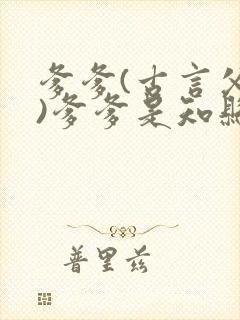 爹爹(古言父
)爹爹是知縣
普里兹